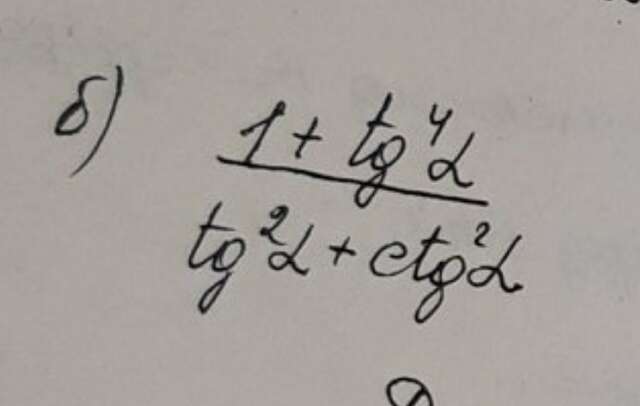 б) 1 + tg⁴α
tg²α + ctg²α